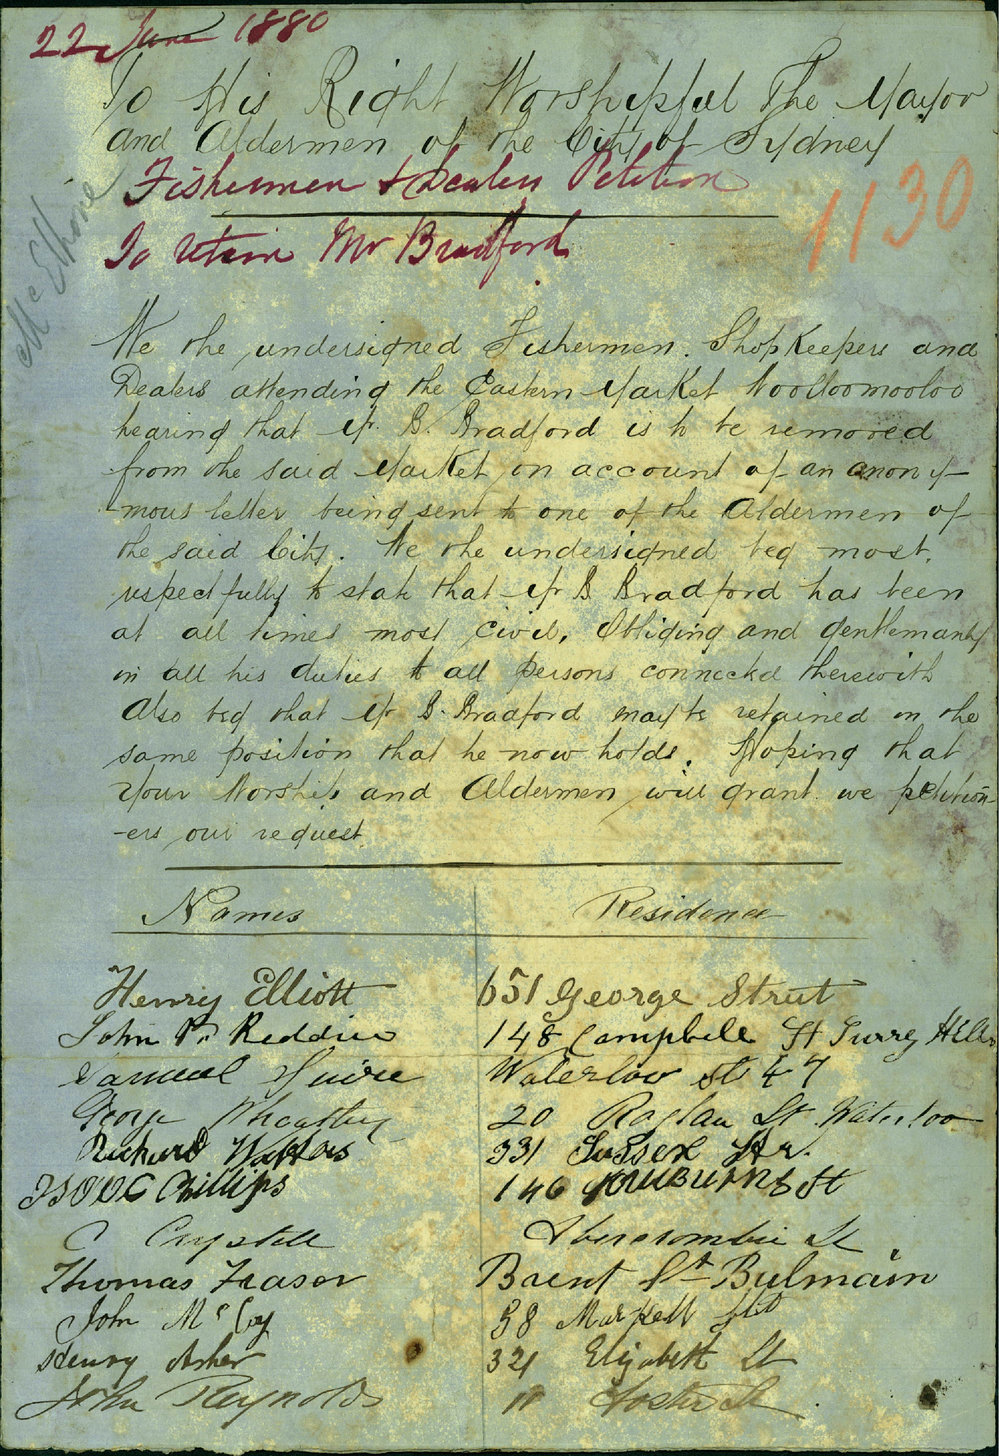 22 June 1880
To His Right Worshipful The Mayor
and Aldermen of the City of Sydney
Fishermen & Dealers Petition
1130
To retain Mr Bradford
Mc Elhone
We the undersigned Fishermen. ShopKeepers and
Dealers attending the Eastern Market Woolloomooloo
hearing that Mr. B. Bradford is to be removed
from the said Market on account of an anony-
mous letter being sent to one of the Aldermen of
the said City. We the undersigned beg most.
respectfully to state that Mr B Bradford has been
at all times most civil, Obliging and gentlemanly
in all his duties to all persons connected therewith
Also beg that Mr B. Bradford may be retained in the
same position that he now holds. Hoping that
your Worship and Aldermen will grant we petition-
-ers our request.
Names Residence
Henry Elliott 651 George Street
John Reddin 148 Campbell St Surry Hills
Samuel Squire Waterloo St 47
George Wheatley 20 Raglan St. Waterloo
Richard Watters 331 Sussex Str.
ISAAC Phillips 146 St
C Crystall Abercrombie St
Thomas Frasor Brent St Balmain
John Mc Coy 38 Markett Str
Henry Asher 321 Elizabeth St
John Reynolds 11 Foster St.